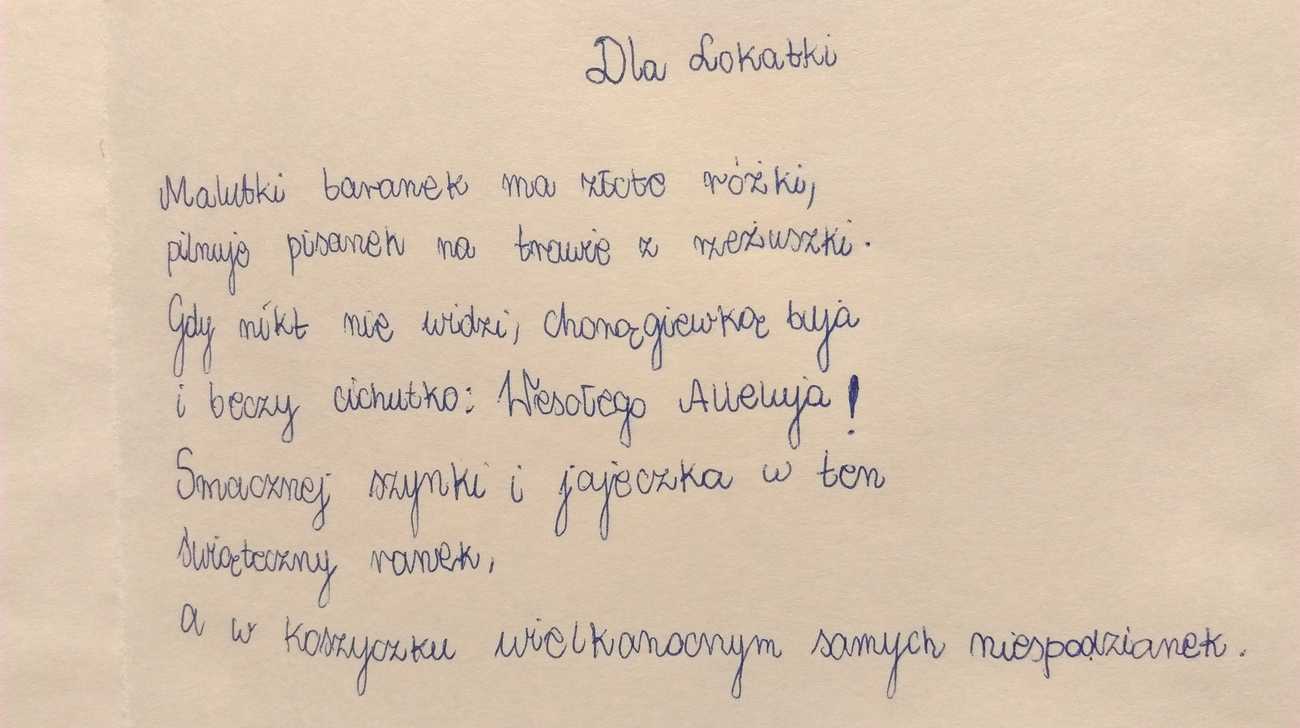 Dla Lokatki
Malutki baranek ma złote różki,
pilnuje pisanek na trawie z rzeżuszki.
Gdy nikt nie widzi, chorągiewką buja
i beczy cichutko: Wesołego Alleluja!
Smacznej szynki i jajeczka w ten
świąteczny ranek,
a w koszyczku wielkanocnym samych niespodzianek.